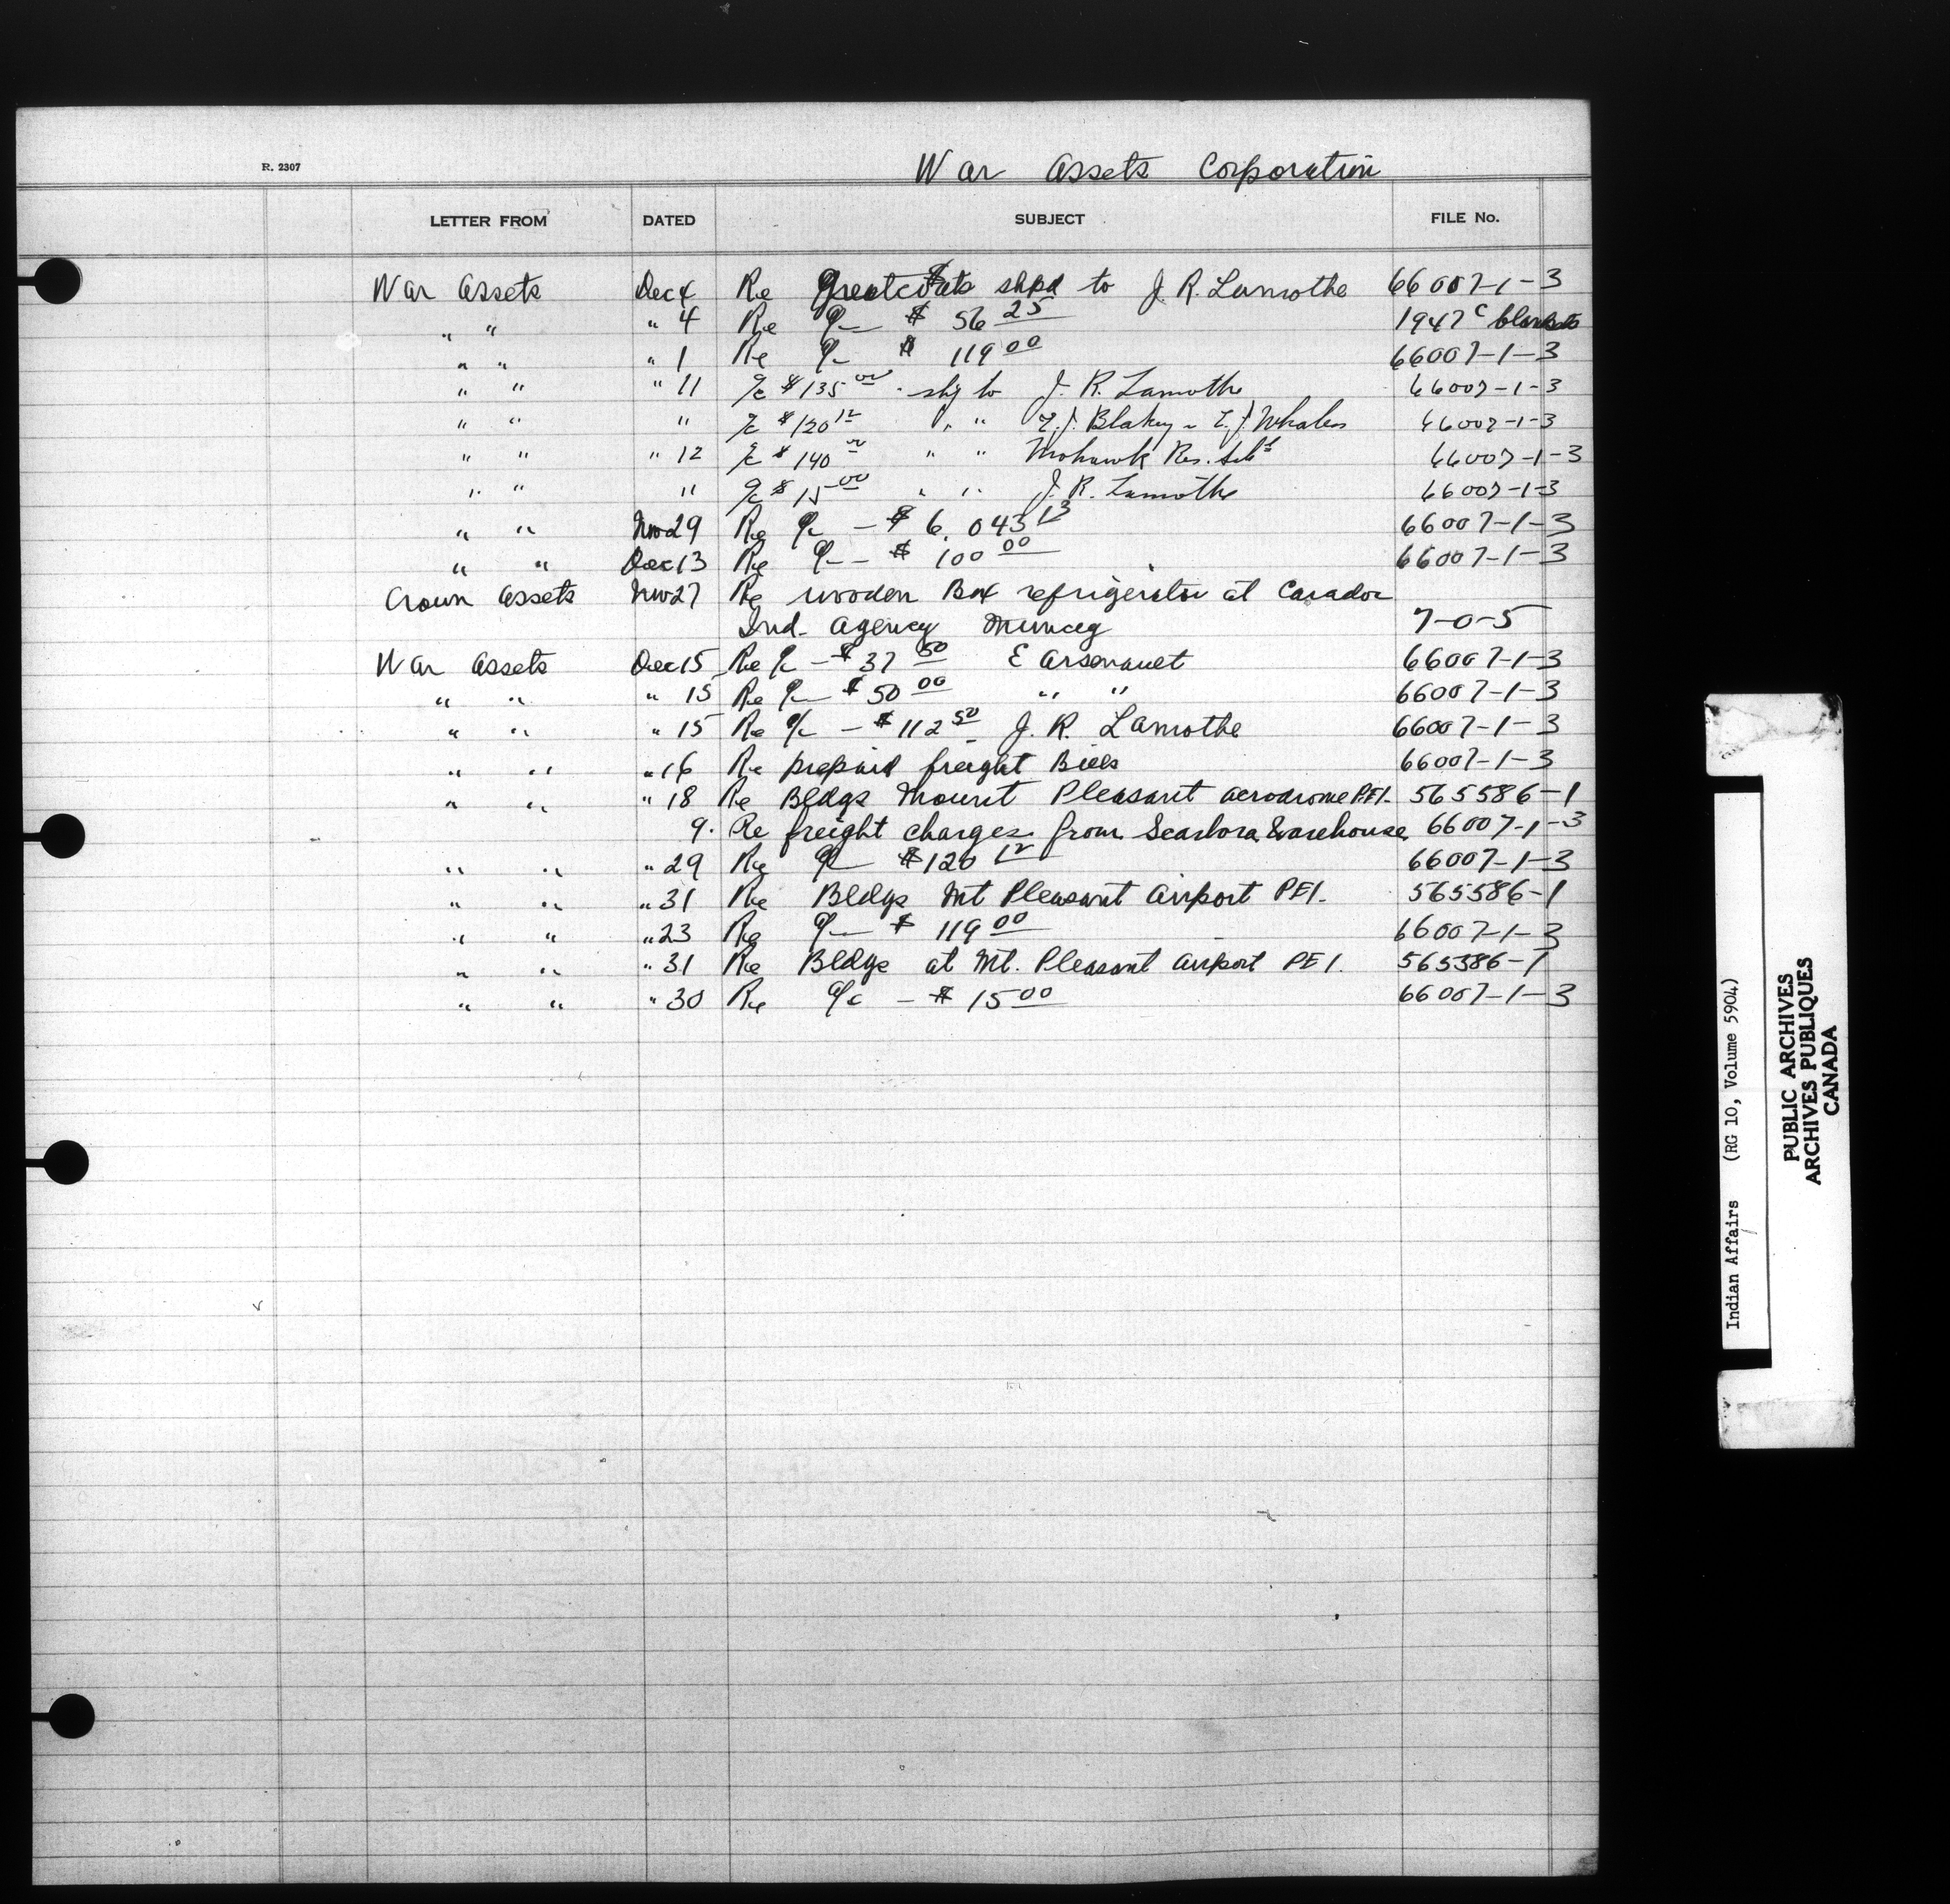 R. 2307
War Assets Corporation
LETTER FROM DATED SUBJECT FILE No.
War Assets Dec 4 Re Greatcoats shpd to J. R. Lamothe 66007-1-3
" " " 4 Re a/c $ 56 25 1947 C blankets
" " " 1 Re a/c $ 119 00 66007-1-3
" " " 11 a/c $ 135 00 - shp to J. R. Lamothe 66007-1-3
" " " a/c $ 120 12 " " J. Blakey 66007-1-3
" " " 12 a/c $ 140 00 " " Mohawk Res. Schl 66007-1-3
" " " a/c $ 15 00 " " J. R. Lamothe 66007-1-3
" " Nov 29 Re a/c - $ 6,043 13 66007-1-3
" " Dec 13 Re a/c - $ 100 00 66007-1-3
Crown Assets Nov 27 Re wooden Box refrigerator at Caradoc
Ind. Agency Muncey 7-0-5
War Assets Dec 15 Re a/c - $ 37 50 E Arsenault 66007-1-3
" " " 15 Re a/c $ 50 00 " " 66007-1-3
" " " 15 Re a/c - $ 112 50 J. R. Lamothe 66007-1-3
" " " 16 Re prepaid freight Bills 66007-1-3
" " " 18 Re Bldgs Mount Pleasant aerodrome P.E.I. 565586-1
9. Re freight charges from Scarboro Warehouse 66007-1-3
" " " 29 Re a/c $ 120 12 66007-1-3
" " " 31 Re Bldgs Mt Pleasant Airport PEI. 565586-1
" " " 23 Re a/c $ 119 00 66007-1-3
" " " 31 Re Bldgs at Mt. Pleasant Airport PEI. 565586-1
" " " 30 Re a/c - $ 15 00 66007-1-3
Indian Affairs (RG 10, Volume 5904)
PUBLIC ARCHIVES
ARCHIVES PUBLIQUES
CANADA